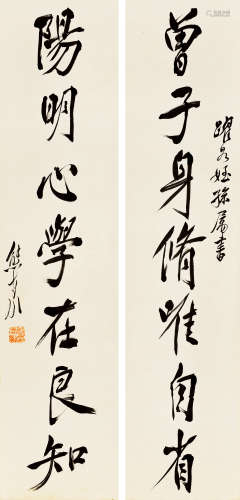 曾子身脩唯自省
躍衢姪孫屬書
陽明心學在良知